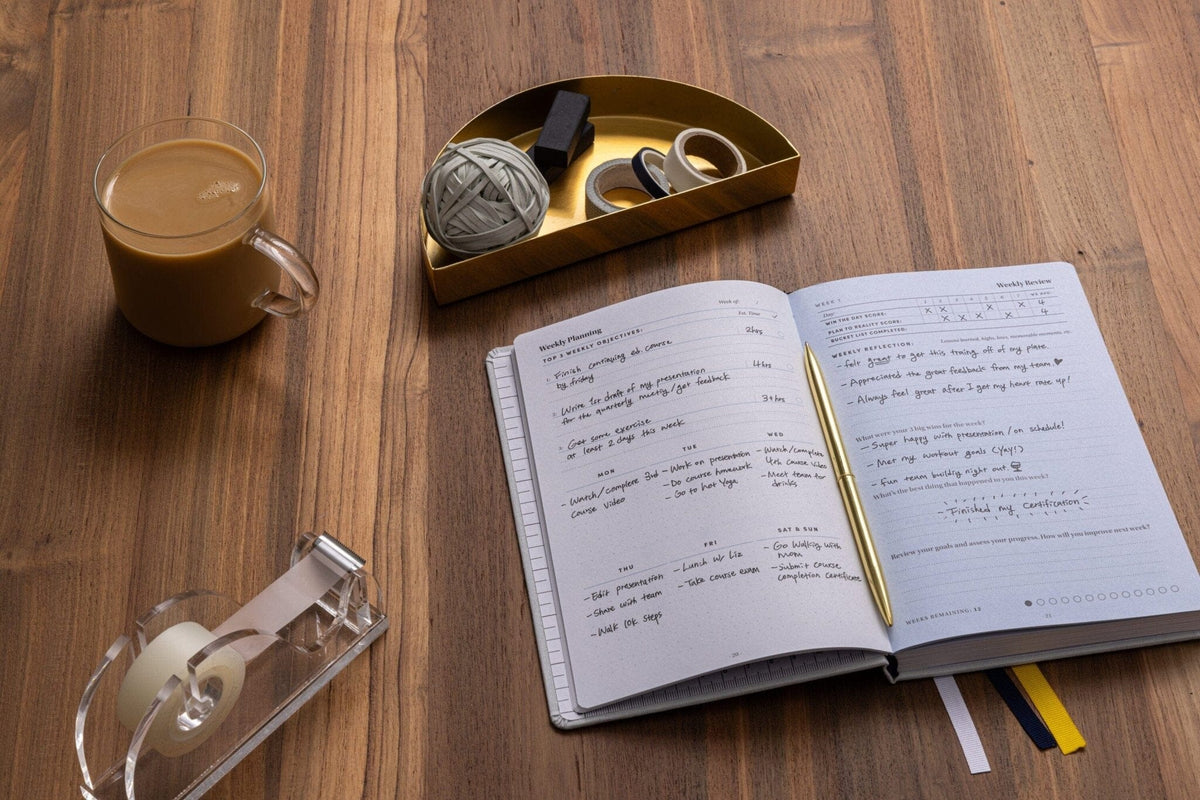 Weekly Planning
Week of: /
TOP 3 WEEKLY OBJECTIVES:
Est. Time
1. Finish continuing ed. course
by friday
2hrs
2. Write 1st draft of my presentation
for the quarterly meetig/get feedback
4hrs
3. Get some exercise
at least 2 days this week
3+hrs
MON
- Watch/complete 3rd
course video
TUE
- Work on presentation
- Do course homework
- Go to hot Yoga
WED
- Watch/Complete
4th course video
- Meet team for
drinks
THU
- Edit presentation
- Share with team
- Walk 10k steps
FRI
- Lunch w/ Liz
- Take course exam
SAT & SUN
- Go Walkig with
mom
- Submit course
completion certificate
20
Weekly Review
WEEK 1
Day 1 2 3 4 5 6 7
WIN THE DAY SCORE: X X X X 4
PLAN TO REALITY SCORE: X X X X 4
BUCKET LIST COMPLETED:
WEEKLY REFLECTION: Lessons learned, highs, lows, memorable moments, etc.
- felt great to get this traing off of my plate.
- Appreciated the great feedback from my team.
- Always feel great after I get my heart rate up!
What were your 3 big wins for the week?
- Super happy with presentation/on schedule!
- Met my workout goals (Yay!)
- fun team buildig night out
What's the best thing that happened to you this week?
- Finished my certification -
Review your goals and assess your progress. How will you improve next week?
WEEKS REMAINING: 12
21